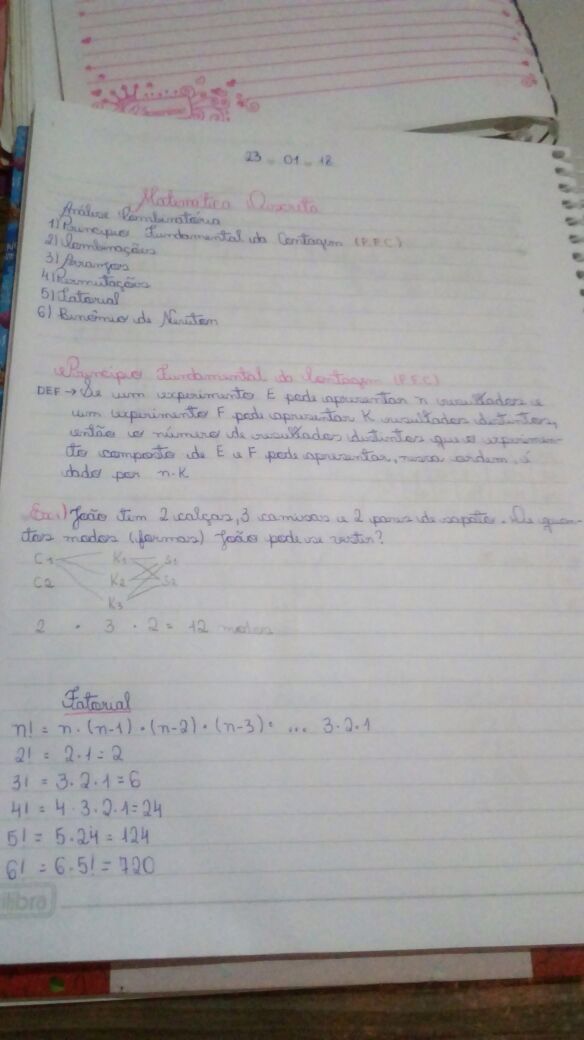 23 - 01 - 18
Matemática Discreta
Análise Combinatória
1) Princípio Fundamental da Contagem (P.F.C)
2) Combinações
3) Arranjos
4) Permutações
5) Fatorial
6) Binômio de Newton
Princípio Fundamental da Contagem (P.F.C)
DEF → Se um experimento E pode apresentar n resultados e
um experimento F pode apresentar K resultados distintos,
então o número de resultados distintos que o experimen-
to composto de E e F pode apresentar, nessa ordem, é
dado por n.K
Ex:) João tem 2 calças, 3 camisas e 2 pares de sapato. De quan-
tos modos (formas) João pode se vestir?
C1 K1 S1
C2 K2 S2
K3
2 . 3 . 2 = 12 modos
Fatorial
n! = n . (n-1) . (n-2) . (n-3) . ... 3.2.1
2! = 2.1 = 2
3! = 3.2.1 = 6
4! = 4.3.2.1 = 24
5! = 5.24 = 124
6! = 6.5! = 720
tilibra